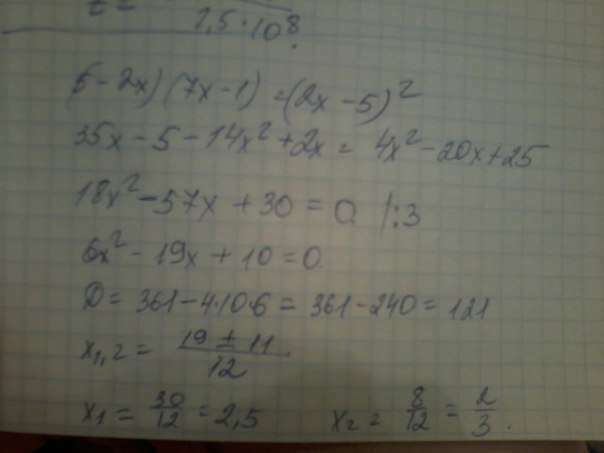 1,5·10⁸.
(5-2x)(7x-1)=(2x-5)²
35x-5-14x²+2x=4x²-20x+25
18x²-57x+30=0 |:3
6x²-19x+10=0
D=361-4·10·6=361-240=121
x₁,₂=(19±11)/12
x₁=30/12=2,5 x₂=8/12=2/3.